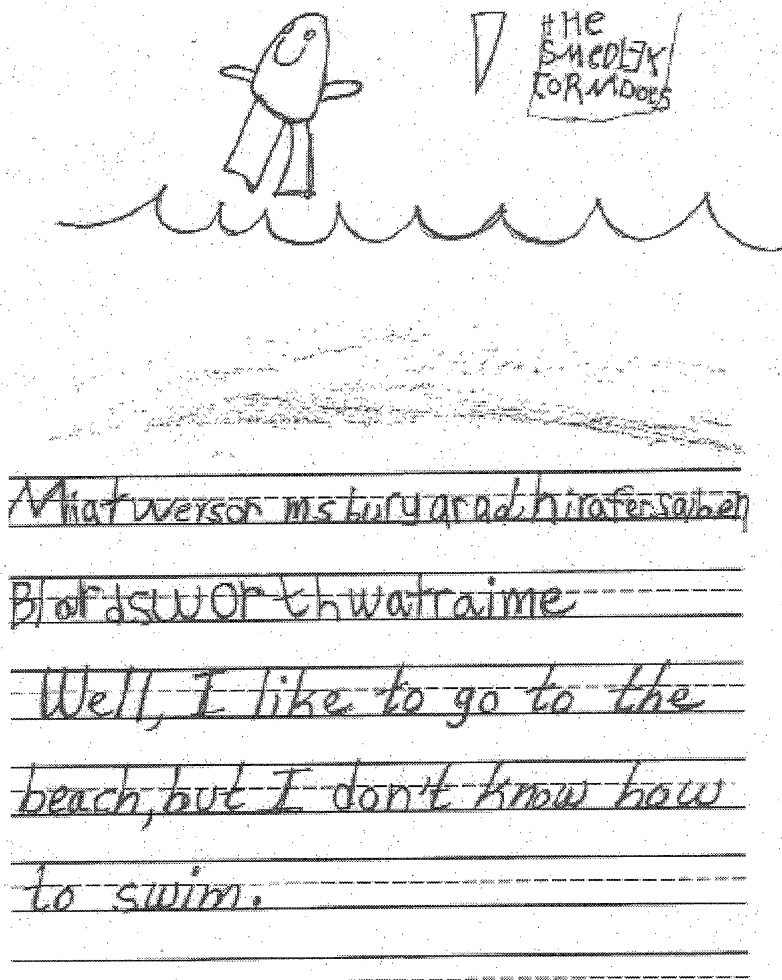 tHe
SMeDLEY
TORNADOES
Miatwersor msburyaradhirafersaiben
Blardsworthwatraime
Well, I like to go to the
beach, but I don't know how
to swim.